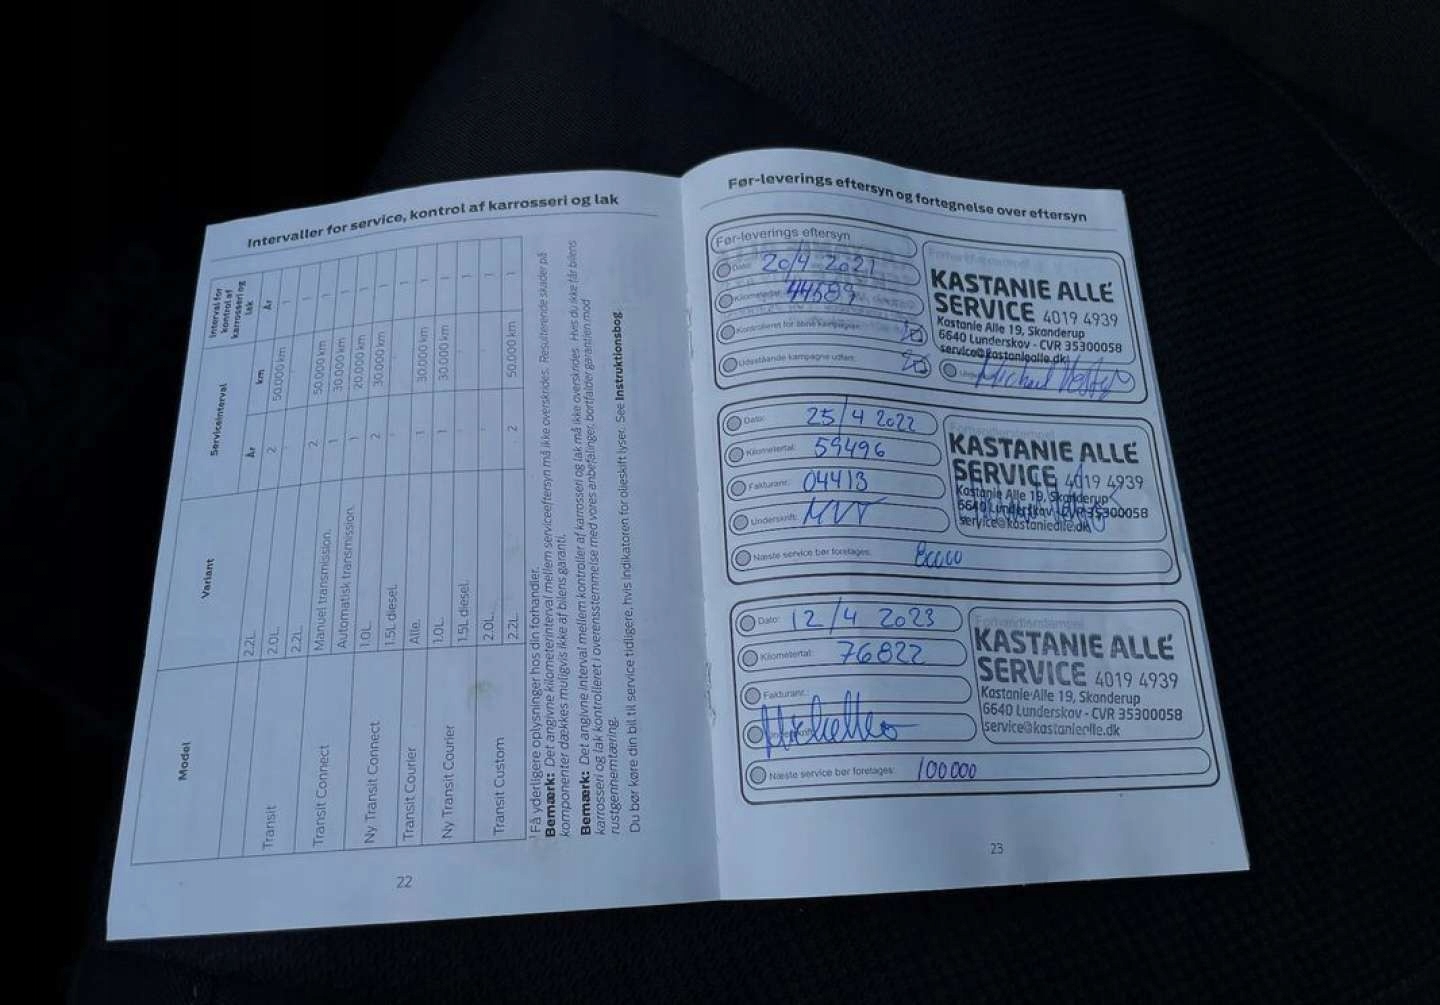 Intervaller for service, kontrol af karrosseri og lak
Model
Variant
Serviceinterval
Interval for kontrol af karrosseri og lak
År
km
År
Transit
2.2L.
2.0L.
2
50.000 km
1
2.2L.
-
1
Transit Connect
Manuel transmission.
2
50.000 km
1
Automatisk transmission.
1
30.000 km
1
Ny Transit Connect
1.0L.
1
20.000 km
1
1.5L diesel.
2
30.000 km
1
Transit Courier
Alle.
-
1
Ny Transit Courier
1.0L.
1
30.000 km
1
1.5L diesel.
1
30.000 km
1
Transit Custom
2.0L.
-
1
2.2L.
2
50.000 km
1
¹ Få yderligere oplysninger hos din forhandler.
Bemærk: Det angivne kilometerinterval mellem serviceeftersyn må ikke overskrides. Resulterende skader på
komponenter dækkes muligvis ikke af bilens garanti.
Bemærk: Det angivne interval mellem kontroller af karrosseri og lak må ikke overskrides. Hvis du ikke får bilens
karrosseri og lak kontrolleret i overensstemmelse med vores anbefalinger, bortfalder garantien mod
rustgennemtæring.
Du bør køre din bil til service tidligere, hvis indikatoren for olieskift lyser. See Instruktionsbog.
22
Før-leverings eftersyn og fortegnelse over eftersyn
Før-leverings eftersyn
Dato: 20/4 2021
Kilometertal: 44589
Kontrolleret for åbne kampagner:
Udestående kampagne udført:
KASTANIE ALLÉ
SERVICE 4019 4939
Kastanie Alle 19, Skanderup
6640 Lunderskov - CVR 35300058
service@kastaniealle.dk
Dato: 25/4 2022
Kilometertal: 59496
Fakturanr.: 04413
Underskrift:
Næste service bør foretages:
KASTANIE ALLÉ
SERVICE 4019 4939
Kastanie Alle 19, Skanderup
6640 Lunderskov - CVR 35300058
service@kastaniealle.dk
Dato: 12/4 2023
Kilometertal: 76822
Fakturanr.:
Næste service bør foretages: 100000
Forhandlerstempel
KASTANIE ALLÉ
SERVICE 4019 4939
Kastanie Alle 19, Skanderup
6640 Lunderskov - CVR 35300058
service@kastaniealle.dk
23